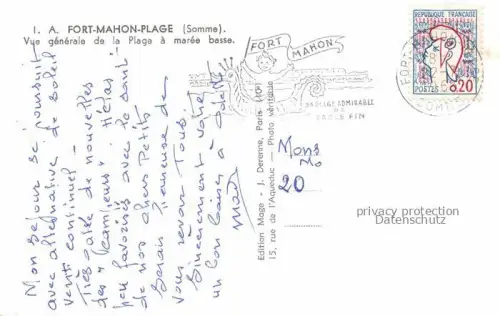 I. A. FORT-MAHON-PLAGE (Somme).
Vue générale de la Plage à marée basse.
Mon séjour se poursuit
avec alternative de soleil
vent continuel -
Très de nouvelles
des
peu favorisés avec la santé
de nos chers Petits
Serais heureuse de
vous revoir Tous
Sincèrement votre
un bon baiser à Odette
Edition Mage - J. Deronne, Paris (10e)
15, rue de l'Aqueduc - Photo véritable
FORT MAHON
PLAGE ADMIRABLE
DE
SABLE FIN
REPUBLIQUE FRANÇAISE
POSTES 0,20
FORT-MAHON
SOMME
Mons
20
privacy protection
Datenschutz